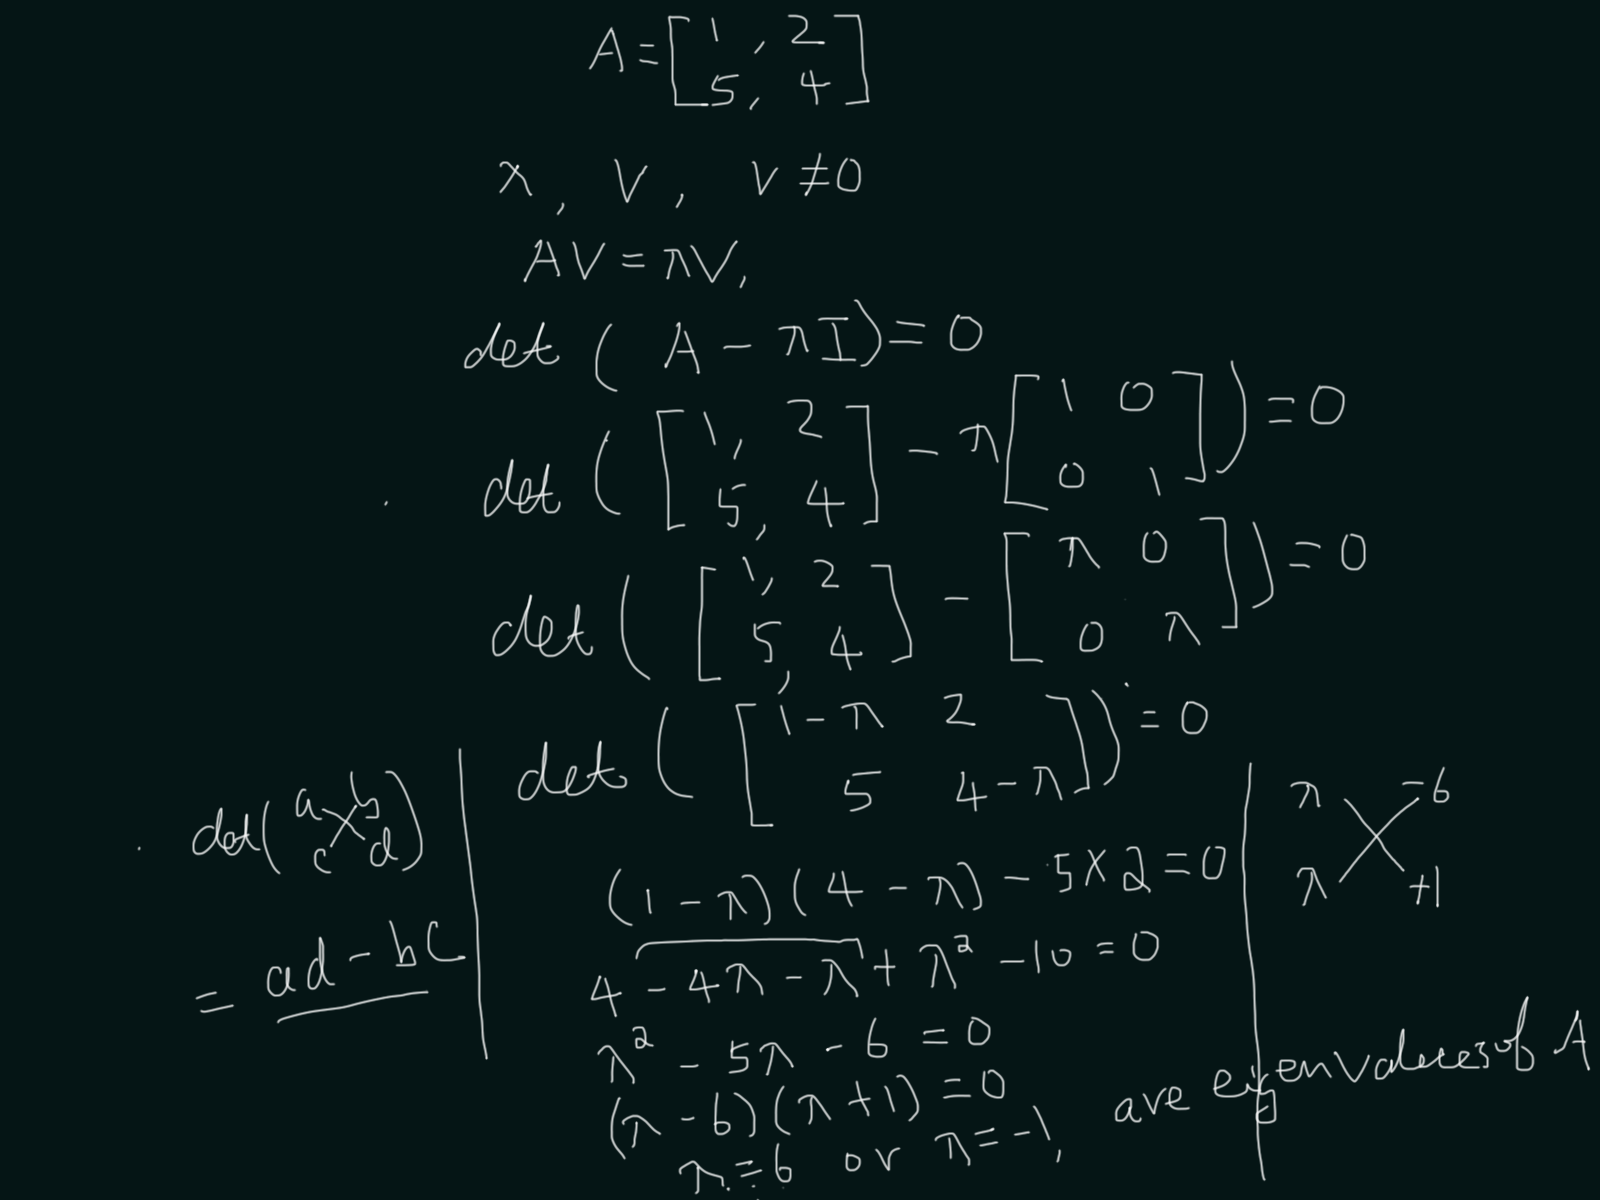 A = [1, 2
5, 4]
λ, V, V ≠ 0
AV = λV,
det ( A - λI) = 0
det ( [1, 2
5, 4] - λ[1 0
0 1]) = 0
det ( [1, 2
5, 4] - [λ 0
0 λ]) = 0
det ( [1-λ 2
5 4-λ]) = 0
det( a b
c d )
= ad - bc
(1-λ)(4-λ) - 5×2 = 0
4 - 4λ - λ + λ² - 10 = 0
λ² - 5λ - 6 = 0
(λ-6)(λ+1) = 0
λ = 6 or λ = -1, are eigenvalues of A
λ -6
λ +1